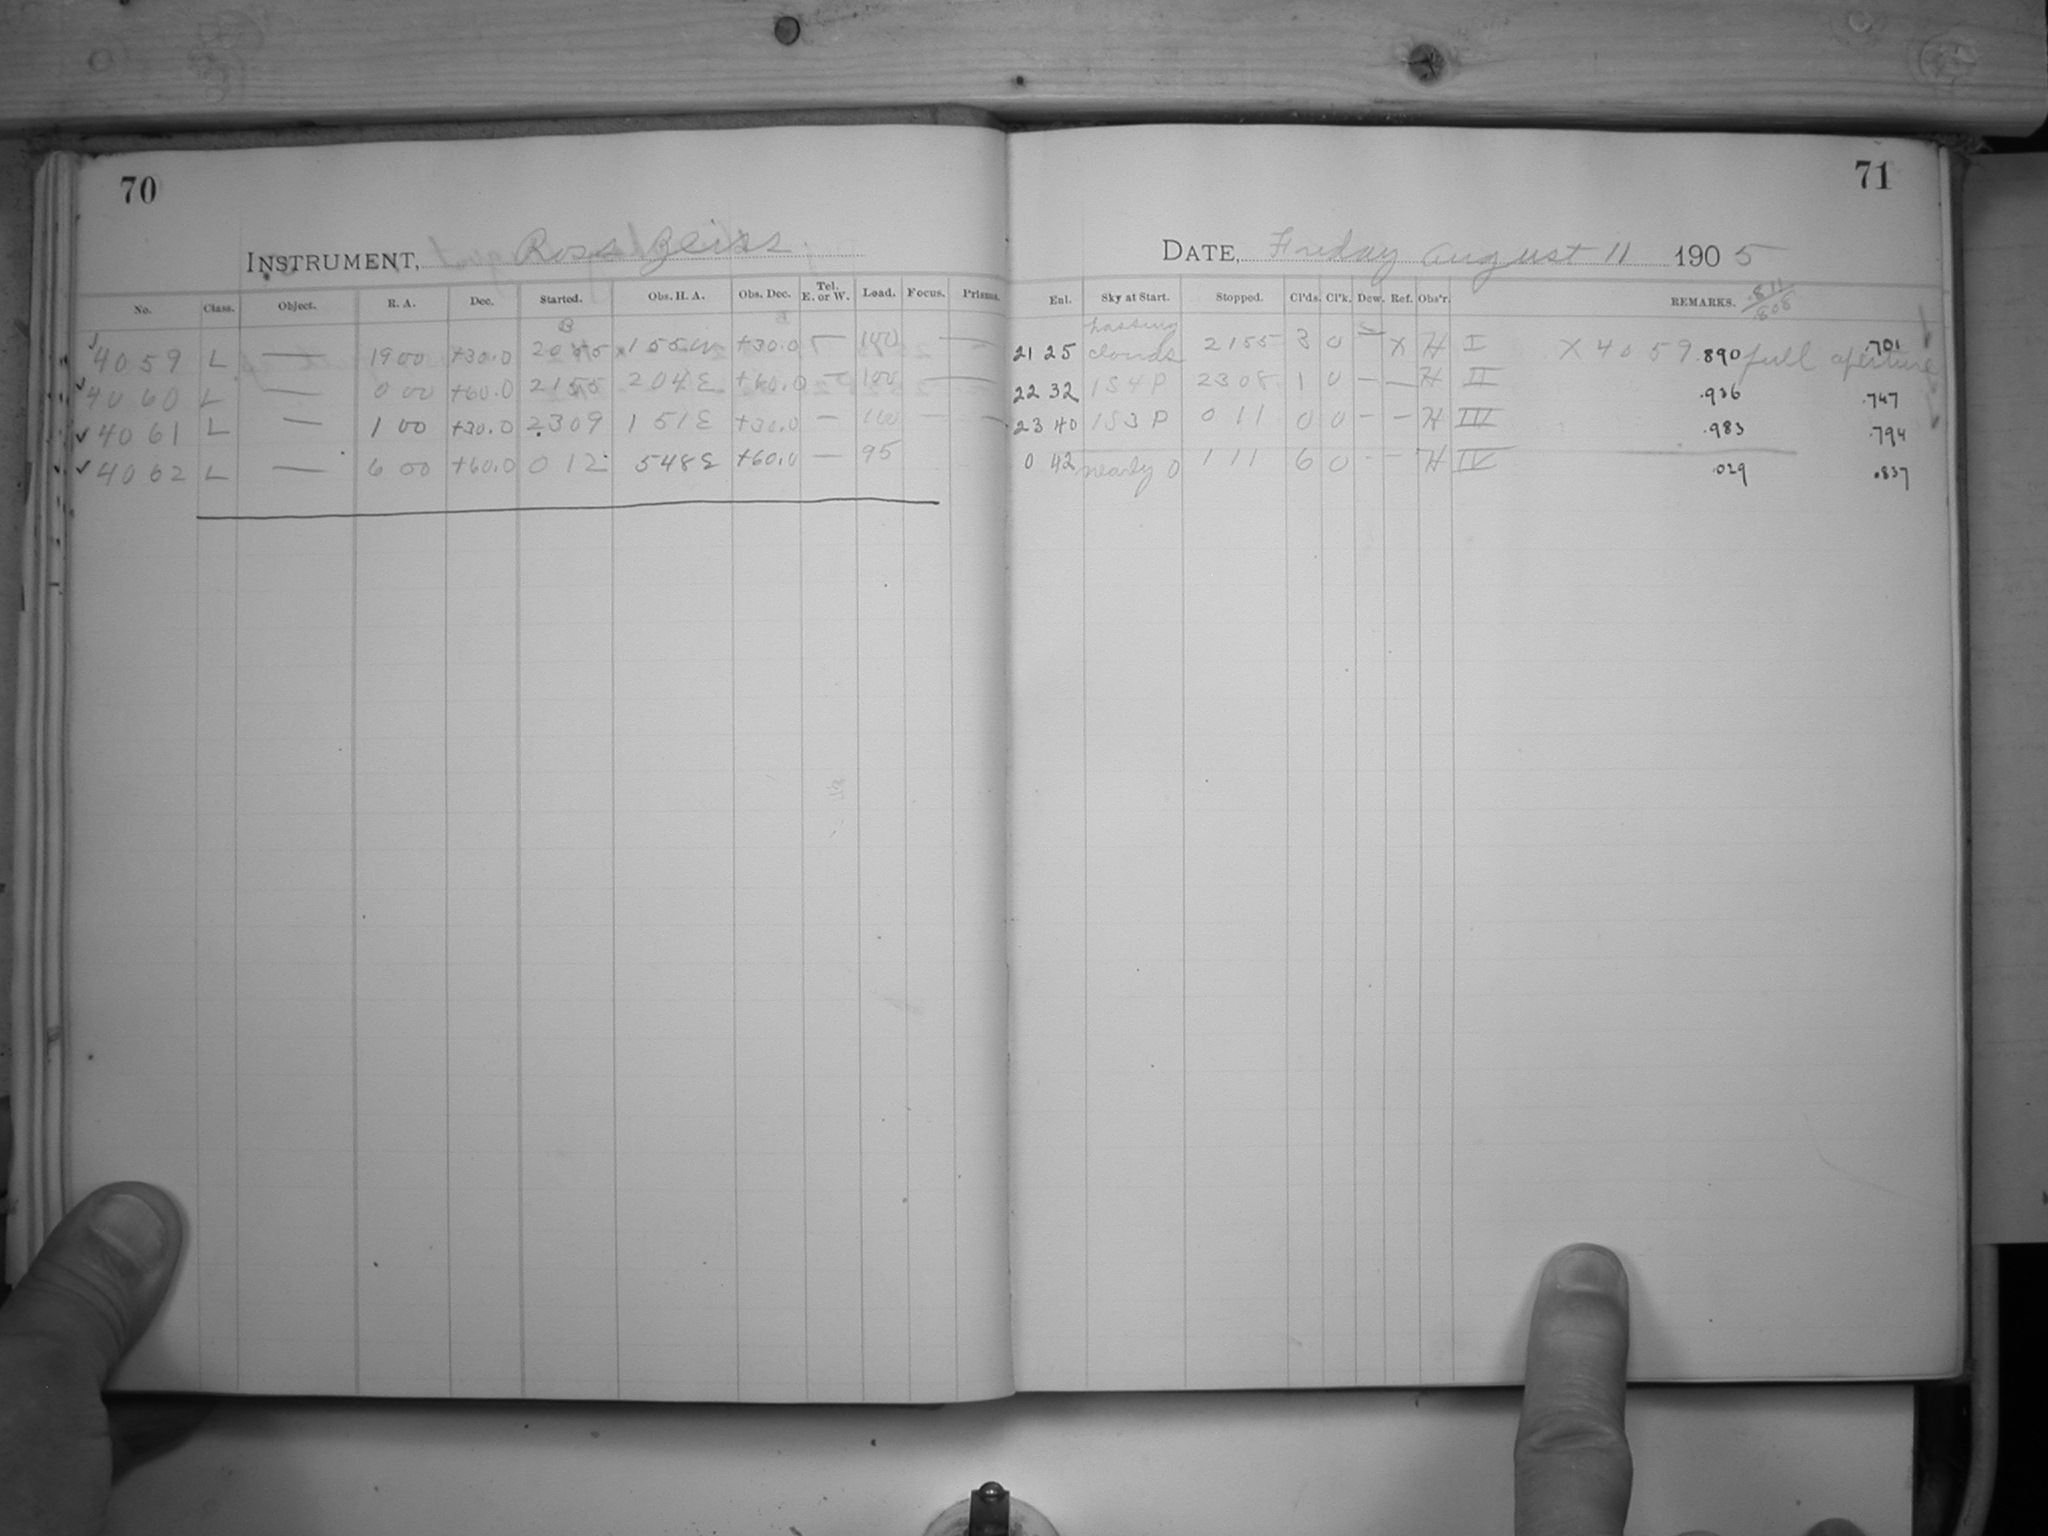 70
INSTRUMENT, Ross Zeiss
No. Class. Object. R. A. Dec. Started. Obs. H. A. Obs. Dec. Tel. E. or W. Load. Focus. Prisms.
4059 L — 19 00 +30.0 2055 1 55 W +30.0 — 100 —
4060 L — 0 00 +60.0 2155 2 04 E +60.0 — 100 —
4061 L — 1 00 +30.0 2309 1 51 E +30.0 — 100 — —
4062 L — 6 00 +60.0 0 12 5 48 E +60.0 — 95
71
DATE, Friday August 11 1905
Enl. Sky at Start. Stopped. Cl'ds. Cl'k. Dew. Ref. Obs'r. REMARKS. .811 / .808
21 25 passing clouds 2155 3 0 — X H I X 4059 .890 full aperture .701
22 32 1S4P 2308 1 0 — — H II .936 .747
23 40 1S3P 0 11 0 0 — — H III .983 .794
0 42 nearly 0 1 11 6 0 - - H IV .029 .837